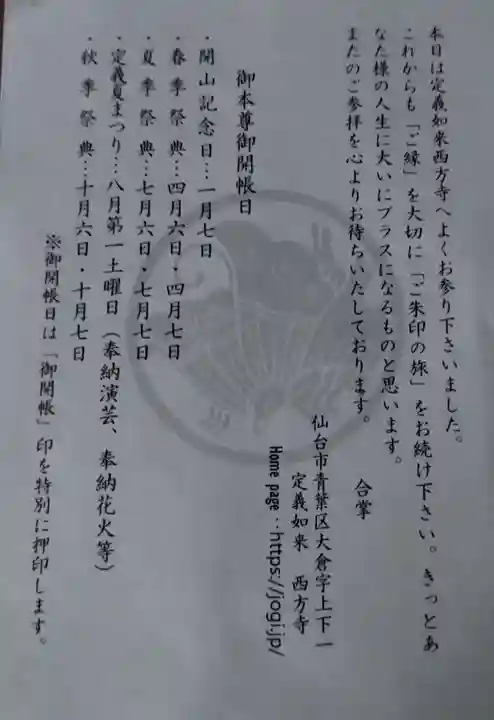 本日は定義如来西方寺へよくお参り下さいました。
これからも「ご縁」を大切に「ご朱印の旅」をお続け下さい。きっとあ
なた様の人生に大いにプラスになるものと思います。
またのご参拝を心よりお待ちいたしております。
合掌
仙台市青葉区大倉字上下一
定義如来　西方寺
Home page：https://jogi.jp/
御本尊御開帳日
・開山記念日…一月七日
・春季祭典…四月六日・四月七日
・夏季祭典…七月六日・七月七日
・定義夏まつり…八月第一土曜日（奉納演芸、奉納花火等）
・秋季祭典…十月六日・十月七日
※御開帳日は「御開帳」印を特別に押印します。